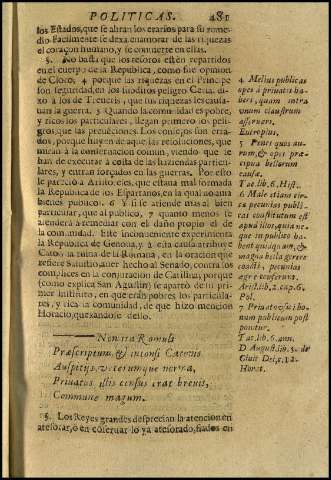 POLITICAS. 481
los Estados, que se abran los erarios para su reme-
dio. Facilmente se dexa enamorar de las riquezas
el coraçon humano, y se conuierte en ellas.
5. No basta que los tesoros esten repartidos
en el cuerpo de la Republica, como fue opinion
de Cloro, 4 porque las riquezas en el Principe
son seguridad, en los subditos peligro. Cerial di-
xo à los de Treueris, que sus riquezas les causa-
uan la guerra. 5 Quando la comunidad es pobre,
y ricos los particulares, llegan primero los peli-
gros, que las preuenciones. Los consejos son erra-
dos, porque huyen de aquellas resoluciones, que
miran à la conseruacion comun, viendo que se
han de executar à costa de las haziendas particu-
lares, y entran forçados en las guerras. Por esto
le pareciò à Aristoteles, que estaua mal formada
la Republica de los Espartanos, en la qual no auia
bienes publicos. 6 Y si se atiende mas al bien
particular, que al publico, 7 quanto menos se
atenderà à remediar con el daño propio el de
la comunidad. Este inconueniente experimenta
la Republica de Genoua, y à esta causa atribuye
Caton la ruina de la Romana, en la oracion que
refiere Salustio auer hecho al Senado, contra los
complices en la conjuracion de Catilina, porque
(como explica San Agustin) se apartò de su pri-
mer instituto, en que eran pobres los particula-
res, y rica la comunidad, de que hizo mencion
Horacio, quexandose dello.
Non ita Romuli
Præscriptum, & intonsi Catonis
Auspitijs, veterumque norma,
Priuatus illis census erat breuis,
Commune magnum.
5. Los Reyes grandes desprecian la atencion en
atesorar, ò en conseruar lo yà atesorado, fiados en
4 Melius publicas
opes à priuatis ha-
beri, quam intra
vnum claustrum
asseruari.
Eutropius.
5 Penes quos au-
rum, & opes præ-
cipuæ bellorum
causæ.
Tac. lib. 4. Hist.
6 Male etiam cir-
ca pecunias publi-
cas constitutum est
apud illos, quia ne-
que in publico ha-
bent quicquam, &
magna bella gerere
coacti, pecunias
ægre conferunt.
Arist. lib. 2. cap. 6.
Pol.
7 Priuato vsui bo-
num publicum post
ponitur.
Tac. lib. 6. ann.
D. August. lib. 5. de
Ciuit. Dei, c. 12.
Horat.